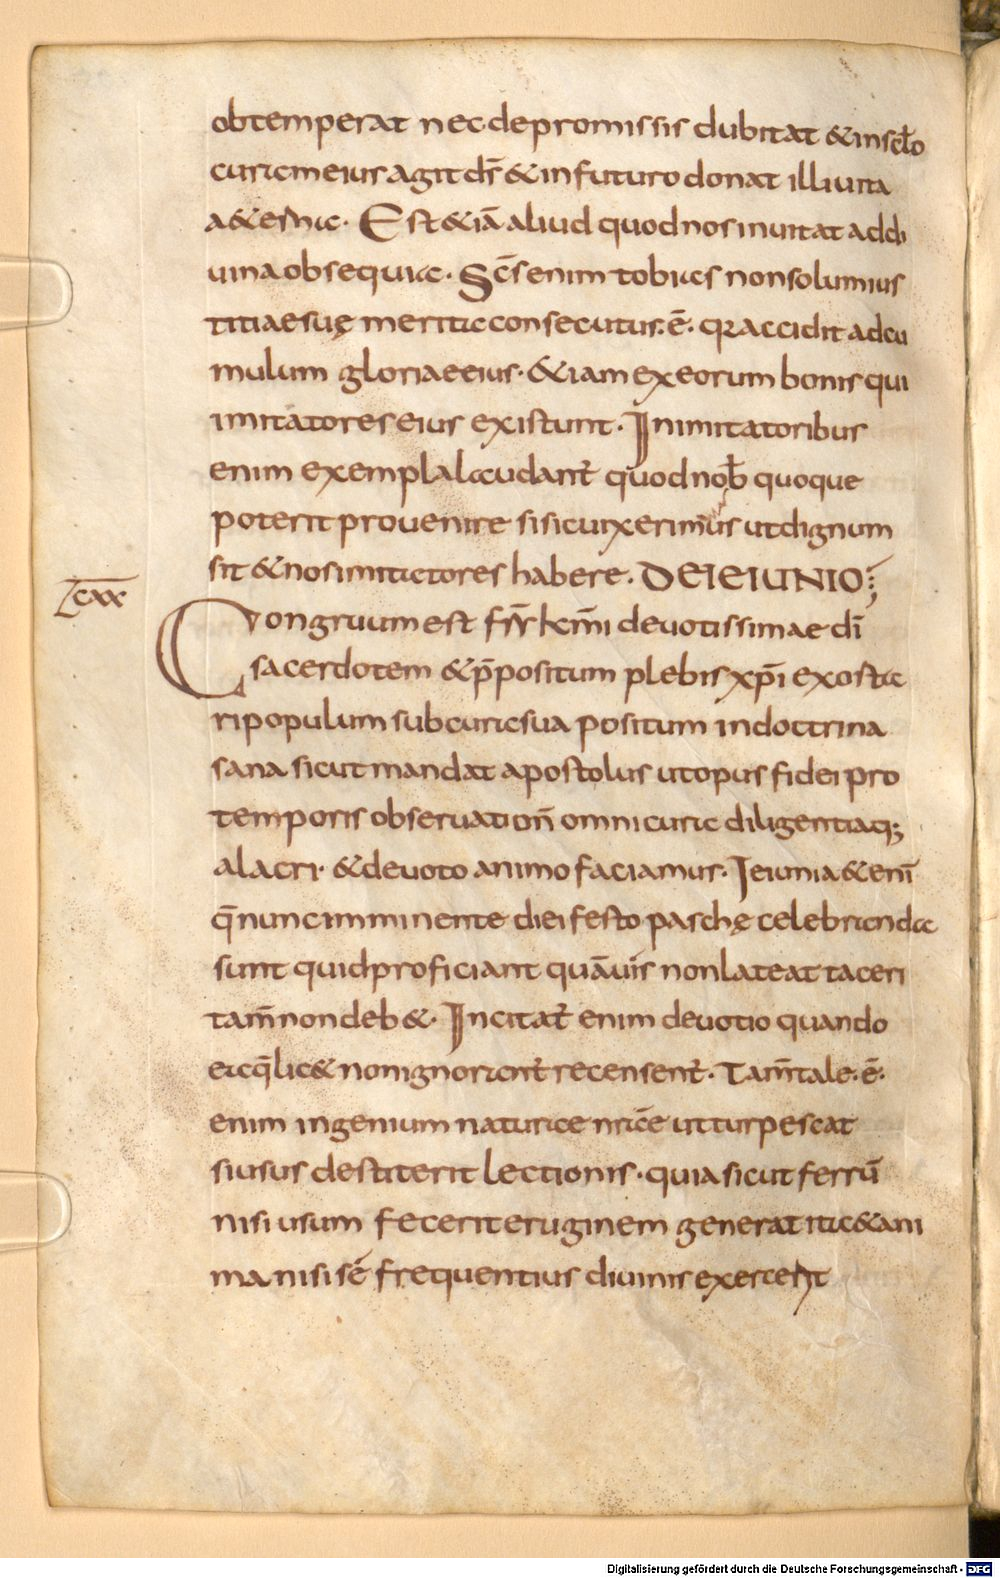 obtemperat nec depromissis dubitat & insclo
curameius agit ds̄ & infuturo donat illi uita
a&ernā. Est &iā aliud quodnos inuitat addi
uina obsequia. Scs̄ enim tobias nonsolum ius
titiae suę meritaconsecutus .ē. qr accidit adcu
mulum gloriae eius. &iam exeorum bonis qui
imitatores eius existunt. Inimitatoribus
enim exempla laudant̄ quod nob̄ quoque
poterit prouenire sisicuixerimus utdignum
sit & nosimitatores habere. DEIEIUNIO;
LXX
Congruum est fr̄r̄ km̄i deuotissimae dī
sacerdotem & p̄positum plebis xp̄i exorta
ri populum subcurasua positum indoctrina
sana sicut mandat apostolus utopus fidei pro
temporis obseruation̄ omni cura diligentiaq;
alacri. & deuoto animo faciamus. Ieiunia & eni̅
q̄ nunc imminente diei festo paschę celebranda
sunt quid proficiant quāuis nonlateat taceri
tam̄ non deb&. Incitat̄ enim deuotio quando
eaq̄ lic& nonignorent̄ recensent̄. Tam̄ tale .ē.
enim ingenium naturae nrāe utturpescat
siusus destiterit lectionis. quia sicut ferrū
nisi usum fecerit eruginem generat ita & ani
ma nisi sē frequentius diuinis exercent
Digitalisierung gefördert durch die Deutsche Forschungsgemeinschaft - DFG